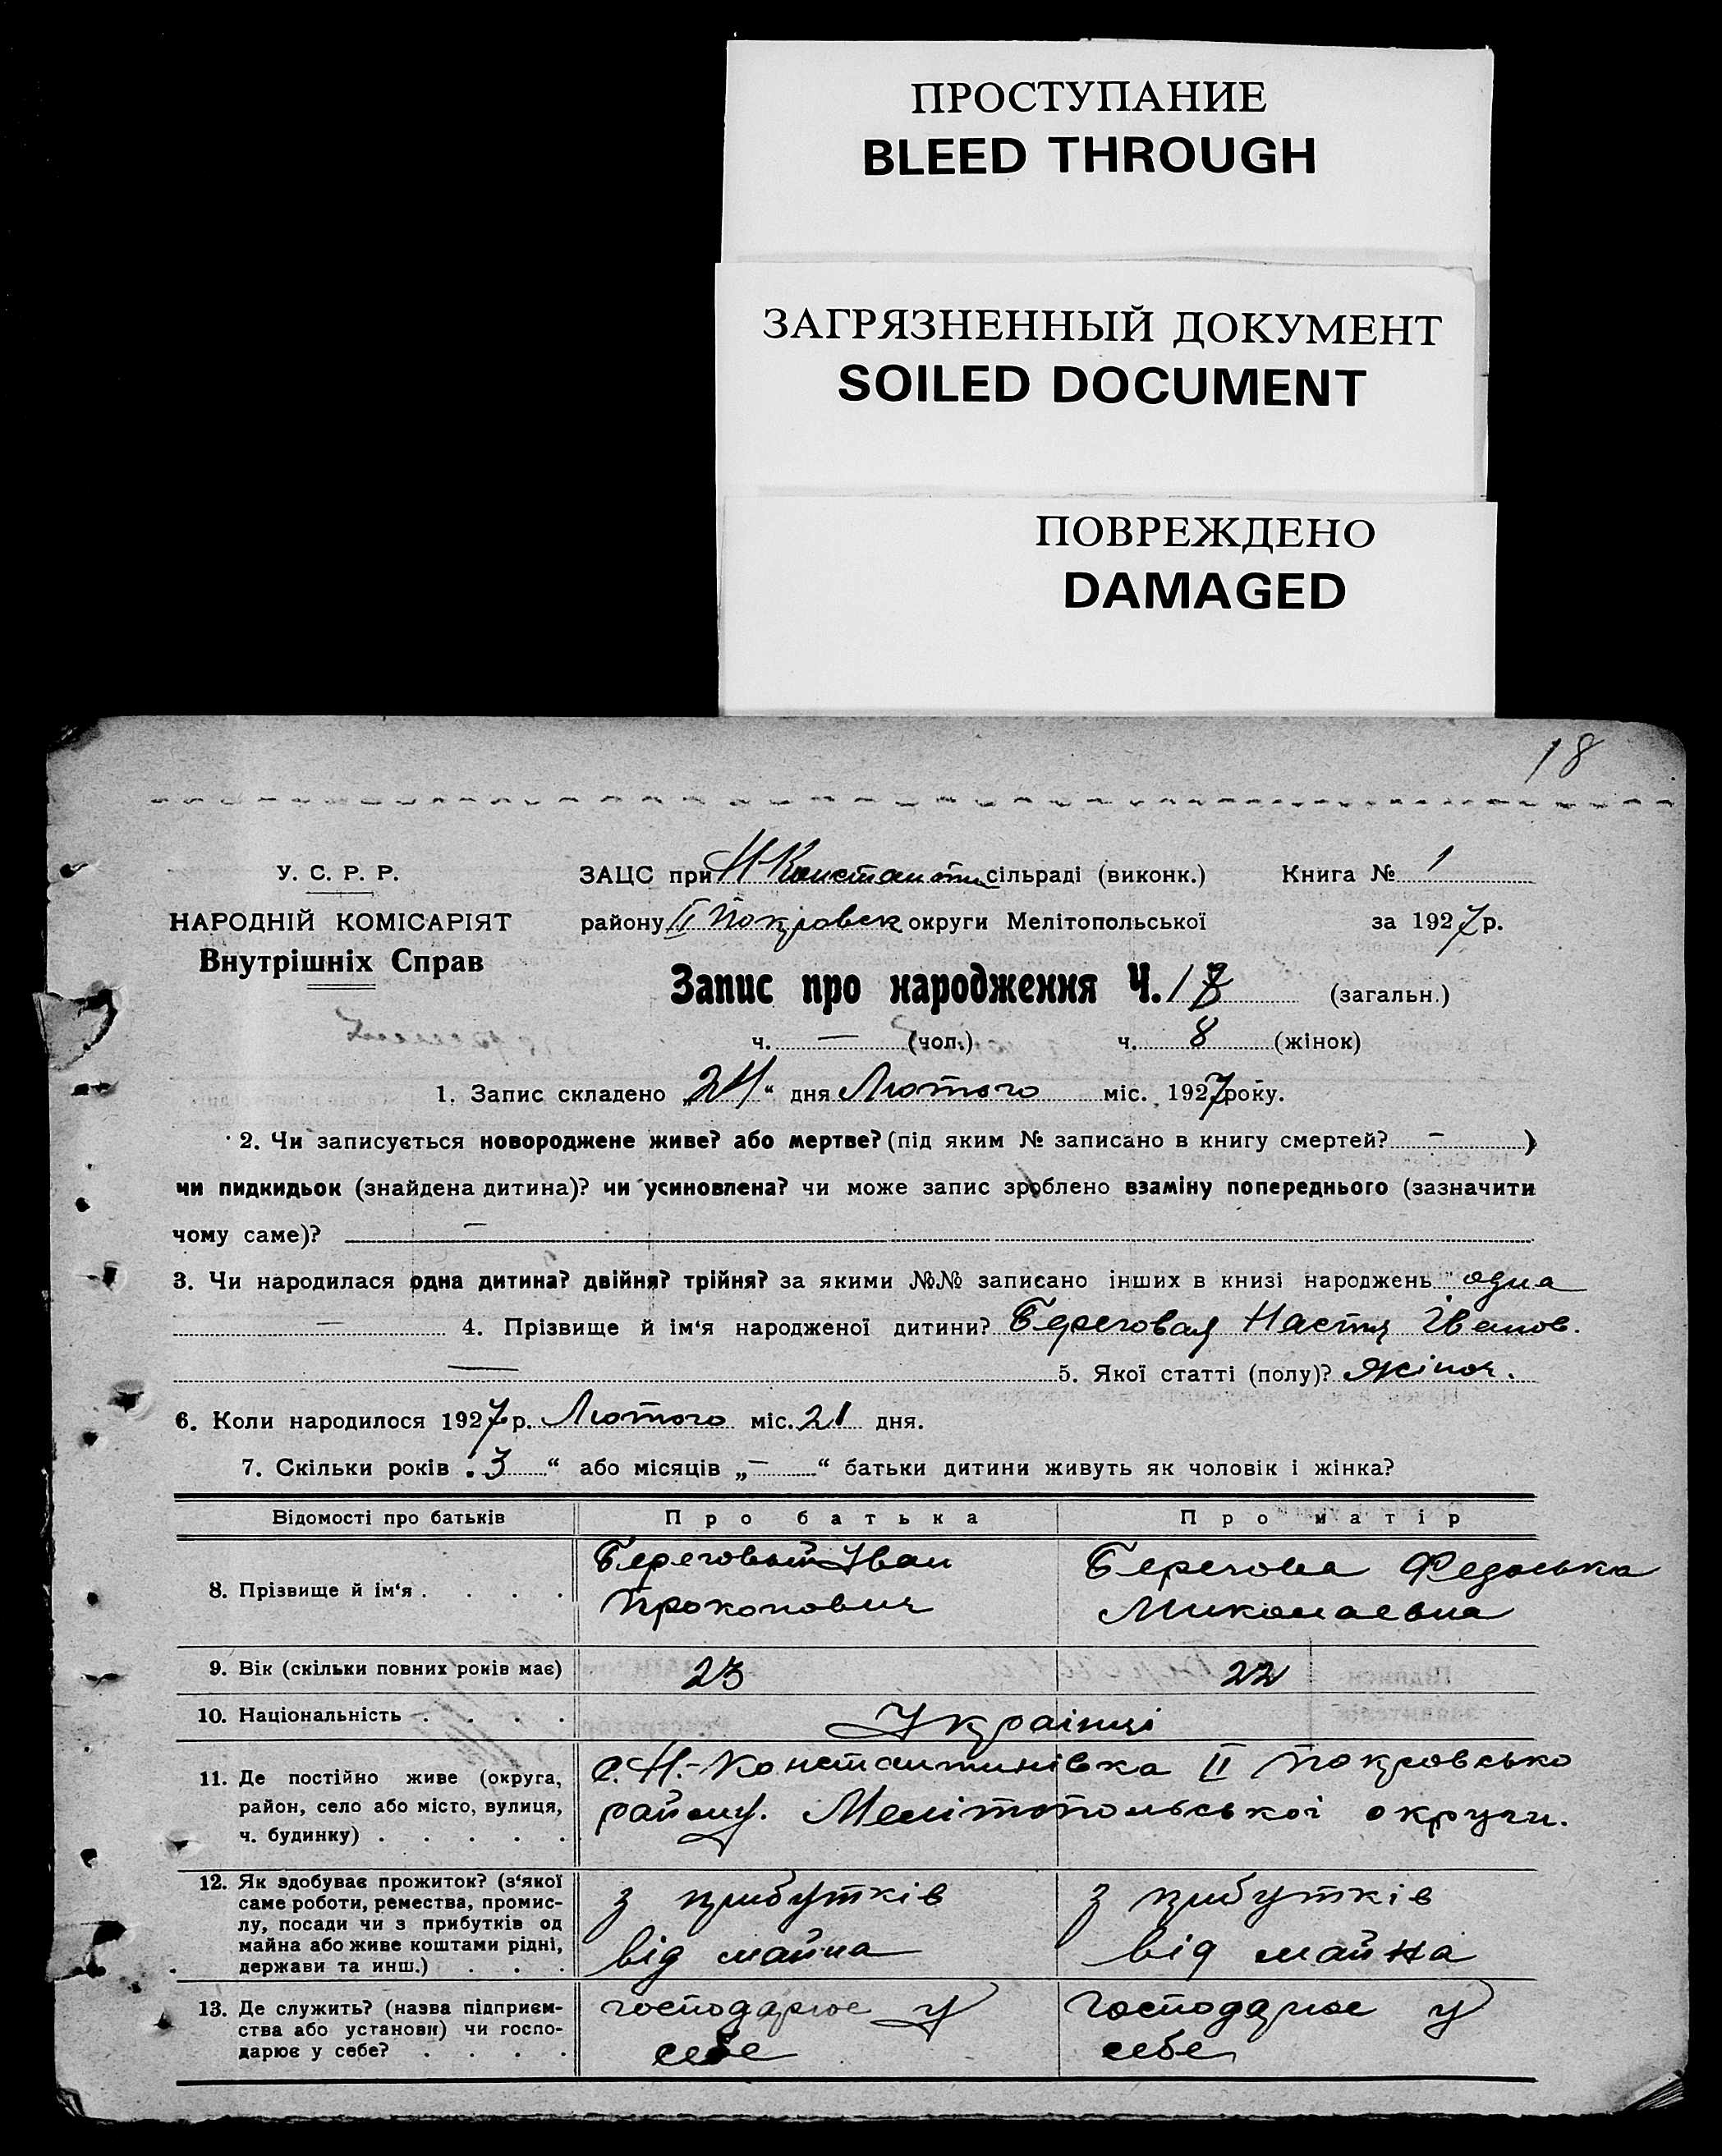 ПРОСТУПАНИЕ
BLEED THROUGH
ЗАГРЯЗНЕННЫЙ ДОКУМЕНТ
SOILED DOCUMENT
ПОВРЕЖДЕНО
DAMAGED
18
У. С. Р. Р.
НАРОДНІЙ КОМІСАРІЯТ
Внутрішніх Справ
ЗАЦС при Н-Константин сільраді (виконк.) Книга № 1
району ІІ Покровськ округи Мелітопольської за 1927 р.
Запис про народження Ч. 17 (загальн.)
ч. — (чол.) ч. 8 (жінок)
1. Запис складено „24“ дня Лютого міс. 1927 року.
2. Чи записується новороджене живе? або мертве? (під яким № записано в книгу смертей? – )
чи пидкидьок (знайдена дитина)? чи усиновлена? чи може запис зроблено взаміну попереднього (зазначити
чому саме)? —
3. Чи народилася одна дитина? двійня? трійня? за якими №№ записано інших в книзі народжень одна
— 4. Прізвище й ім'я народженої дитини? Береговая Настя Іванов.
— 5. Якої статті (полу)? Жіноч.
6. Коли народилося 1927 р. Лютого міс. 21 дня.
7. Скільки років „3“ або місяців „—“ батьки дитини живуть як чоловік і жінка?
Відомості про батьків Про батька Про матір
8. Прізвище й ім'я . . . . Береговый Іван Прокопович Берегова Федоська Миколаевна
9. Вік (скільки повних років має) 23 22
10. Національність . . . . Українці
11. Де постійно живе (округа, район, село або місто, вулиця, ч. будинку) . . . . . с. Н.-Константинівка ІІ Покровсько району. Мелітопольської округи.
12. Як здобуває прожиток? (з'якої саме роботи, ремества, промислу, посади чи з прибутків од майна або живе коштами рідні, держави та инш.) . . . з прибутків від майна з прибутків від майна
13. Де служить? (назва підприємства або установи) чи господарює у себе? . . . . господарює у себе господарює у себе